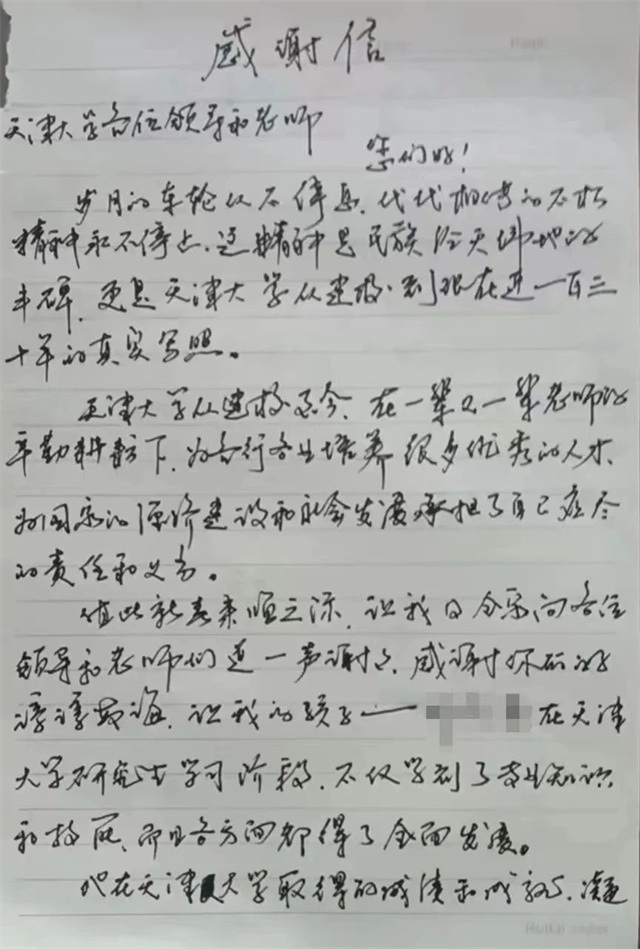 感谢信
天津大学各位领导和老师
您们好！
岁月的车轮从不停息，代代相传的不朽
精神永不停止，这精神是民族顶天绵地的
丰碑，更是天津大学从建校到现在近一百三
十年的真实写照。
天津大学从建校至今，在一辈又一辈老师的
辛勤耕耘下，为各行各业培养很多优秀的人才，
为国家的经济建设和社会发展承担了自己应尽
的责任和义务。
值此新春来临之际，让我日全家向各位
领导和老师们道一声谢谢，感谢你们的
谆谆教诲，让我的孩子——在天津
大学研究生学习阶段，不仅学到了专业知识
和技能，而且各方面都得了全面发展。
他在天津大学取得的成绩和成就，凝